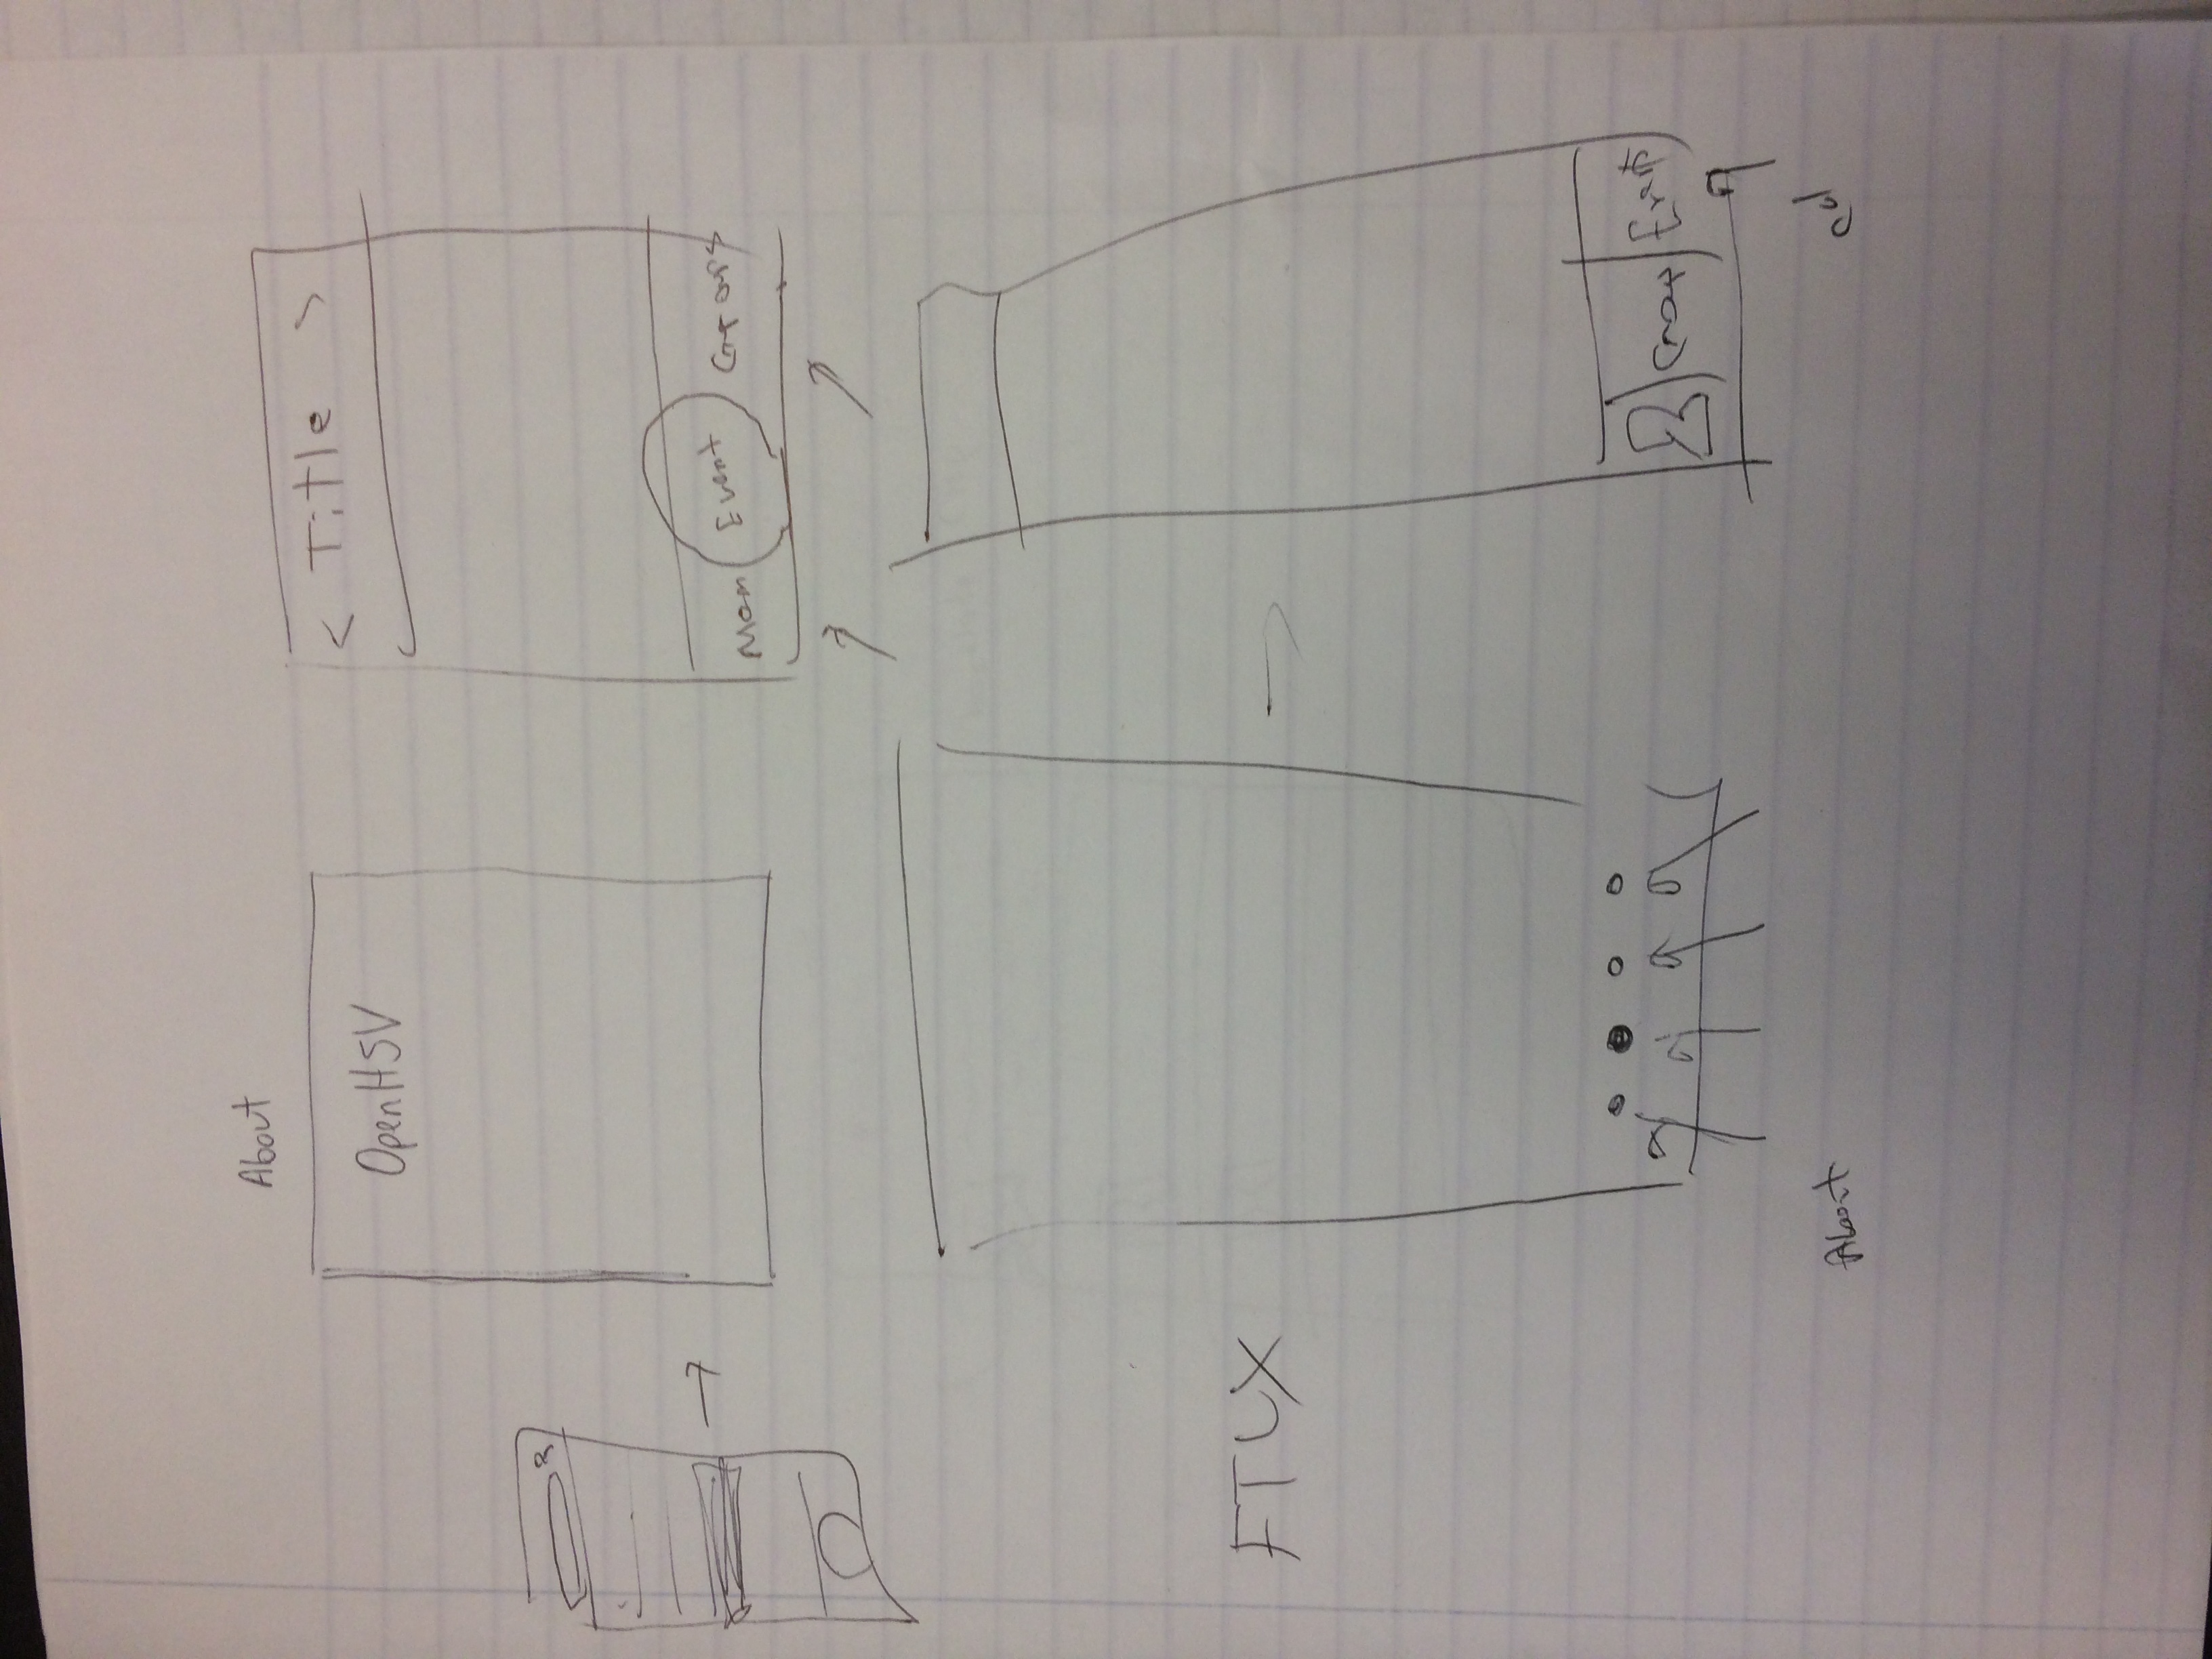 About
OpenHSV
< Title >
Mem Event Groups
FTUX
Group Events
About